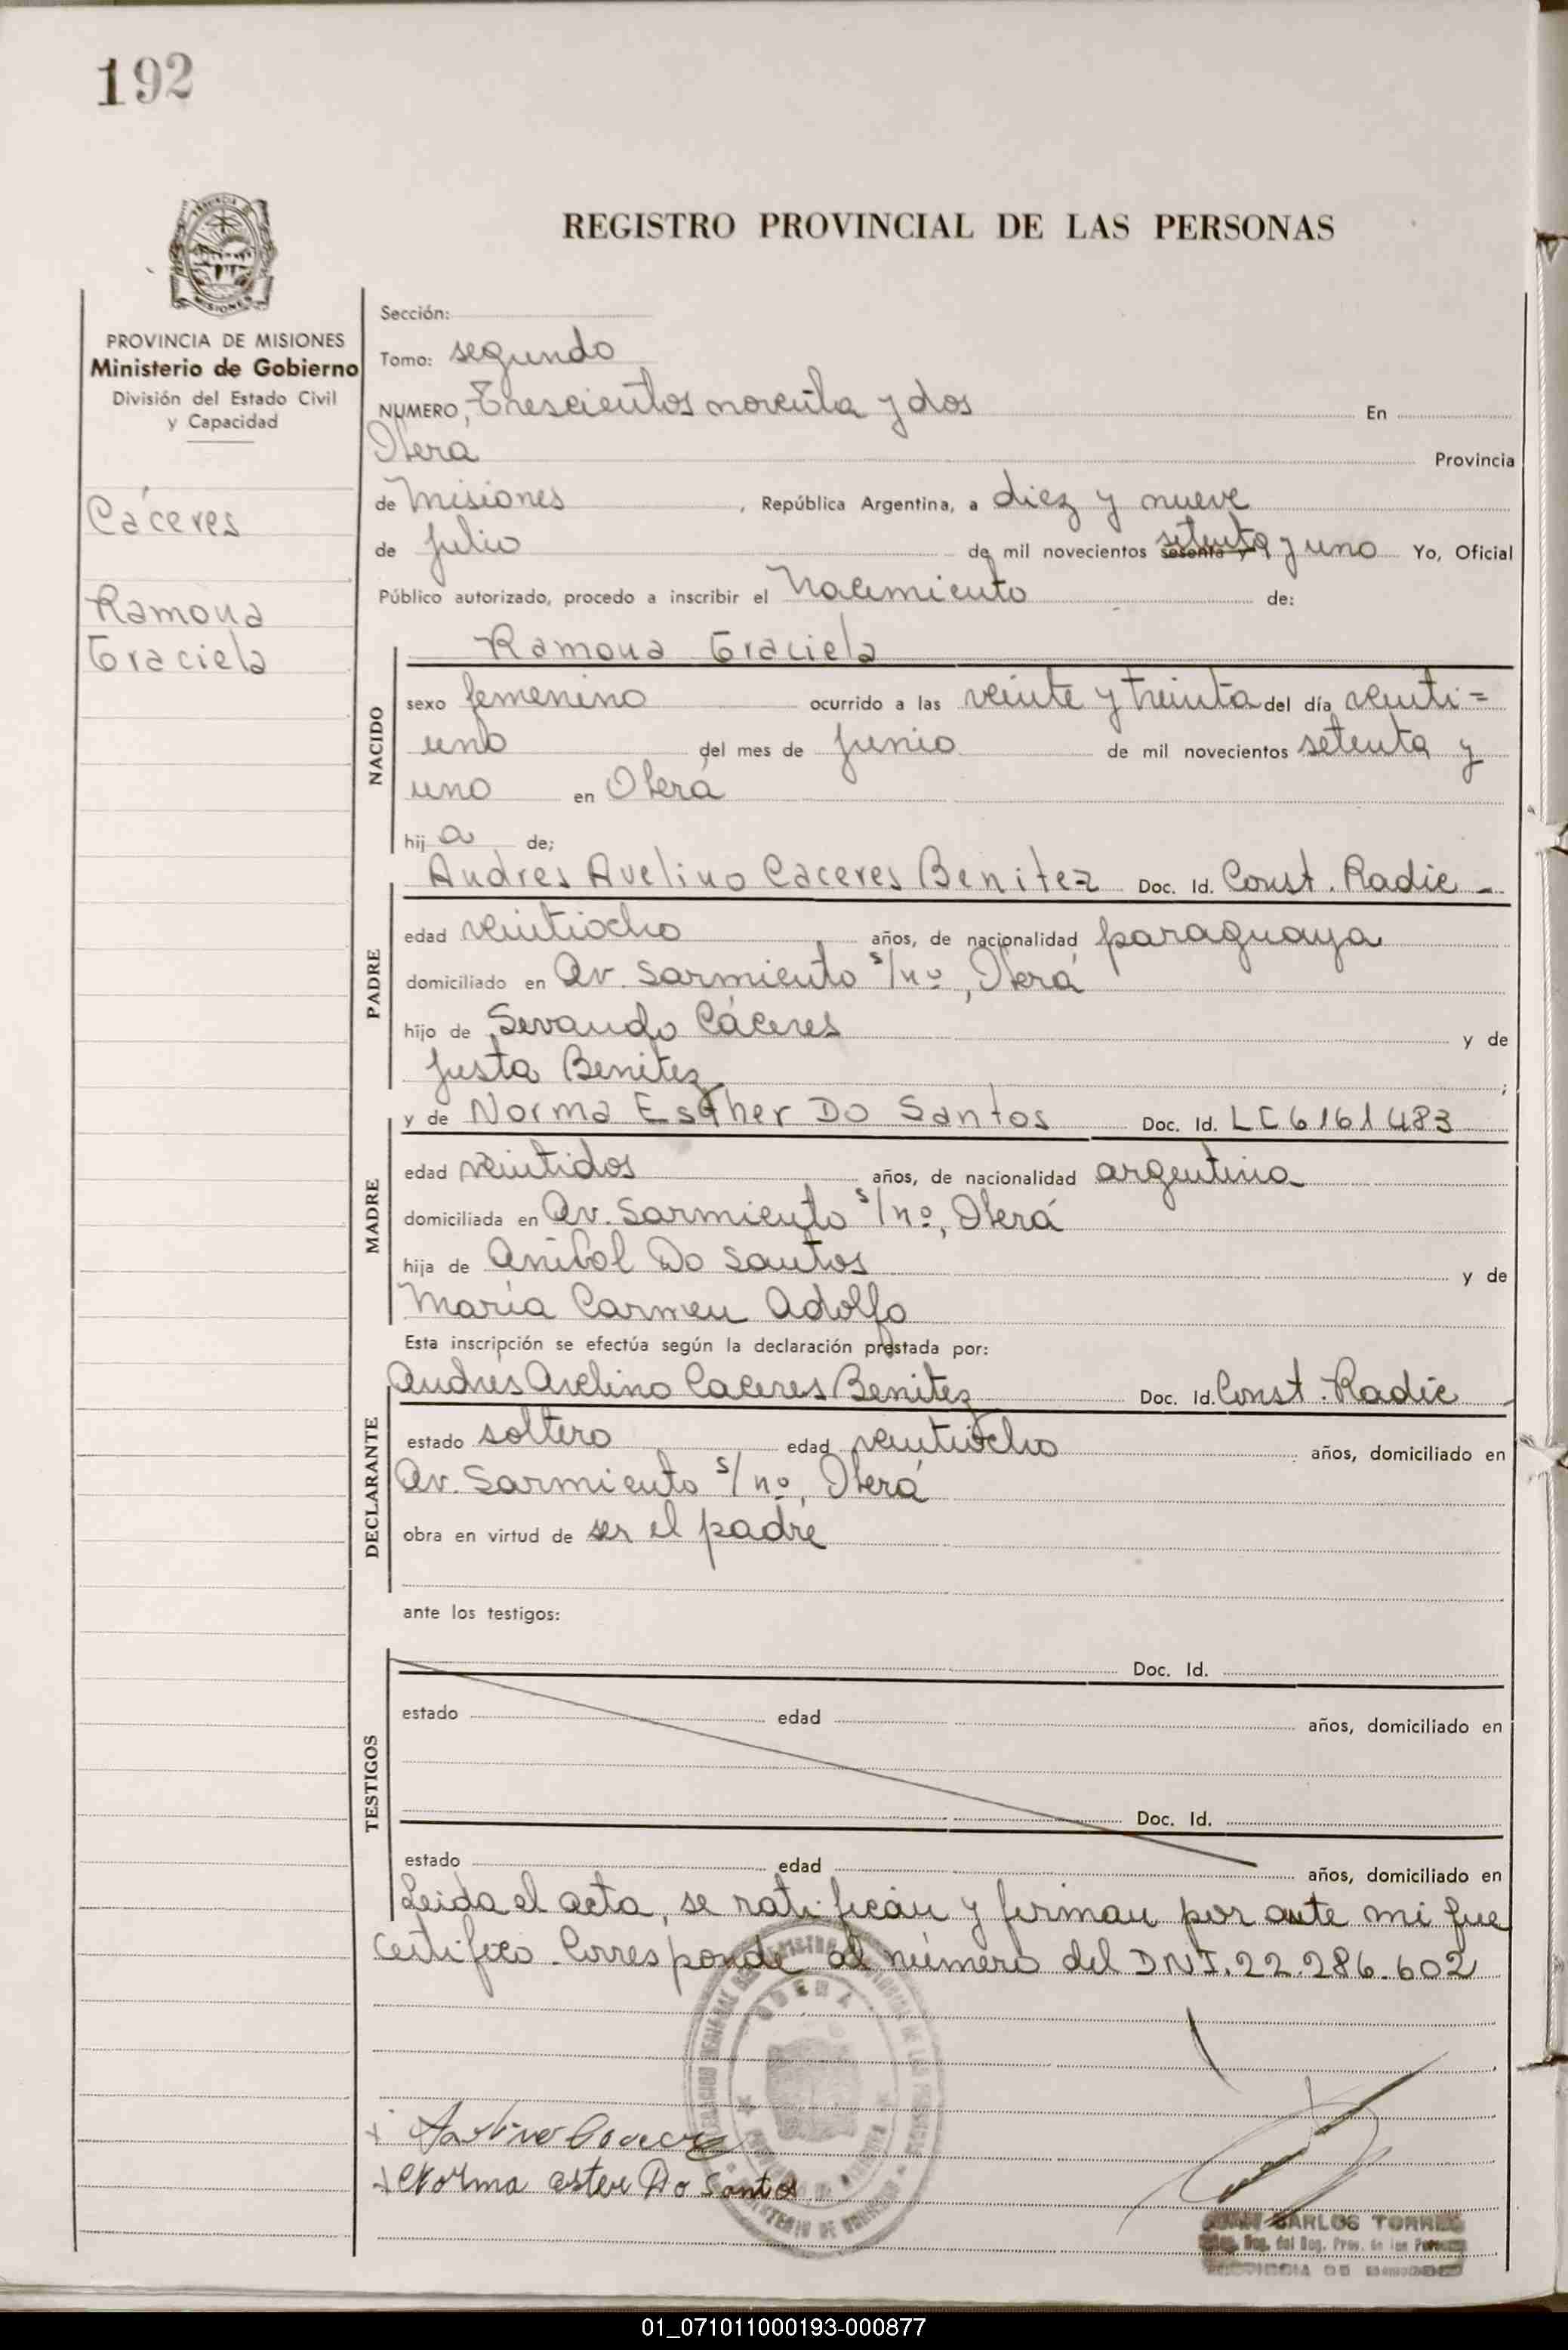 192
PROVINCIA DE MISIONES
Ministerio de Gobierno
División del Estado Civil
y Capacidad
Cáceres
Ramona
Graciela
REGISTRO PROVINCIAL DE LAS PERSONAS
Sección:
Tomo: segundo
NUMERO, Trescientos noventa y dos En
Oberá Provincia
de Misiones, República Argentina, a diez y nueve
de julio de mil novecientos sesenta y setenta y uno Yo, Oficial
Público autorizado, procedo a inscribir el Nacimiento de:
Ramona Graciela
NACIDO
sexo femenino ocurrido a las veinte y treinta del día veinti=
uno del mes de junio de mil novecientos setenta y
uno en Oberá
hij a de;
Andres Avelino Caceres Benitez Doc. Id. Const. Radic-
PADRE
edad veintiocho años, de nacionalidad paraguaya
domiciliado en Av. Sarmiento s/nº, Oberá
hijo de Servando Cáceres y de
Justa Benitez;
y de Norma Esther Do Santos Doc. Id. LC 6161483
MADRE
edad veintidos años, de nacionalidad argentina
domiciliada en Av. Sarmiento s/nº, Oberá
hija de Anibal Do Santos y de
María Carmen Adolfo
Esta inscripción se efectúa según la declaración prestada por:
Andrés Avelino Caceres Benitez Doc. Id. Const. Radic
DECLARANTE
estado soltero edad veintiocho años, domiciliado en
Av. Sarmiento s/nº, Oberá
obra en virtud de ser el padre
ante los testigos:
TESTIGOS
Doc. Id.
estado edad años, domiciliado en
Doc. Id.
estado edad años, domiciliado en
Leida el acta, se ratifican y firman por ante mi que
certifico. Corresponde al número del DNI. 22.286.602
Norma ester Do Santos
CARLOS TORRES
del Reg. Prov. de las
01_071011000193-000877